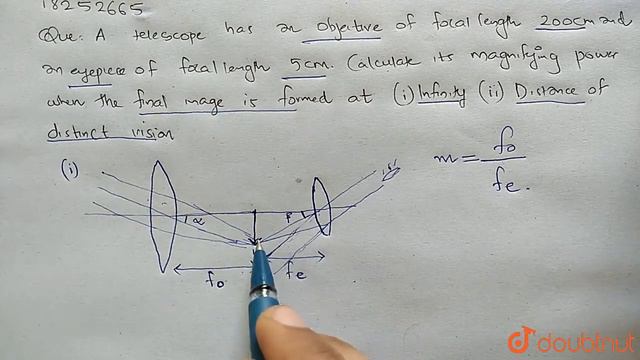 18252665
Que: A telescope has an objective of focal length 200cm and
an eyepiece of focal length 5cm. Calculate its magnifying power
when the final image is formed at (i) Infinity (ii) Distance of
distinct vision
(i)
m = fo
fe.
α
β
fo
fe
doubtnut